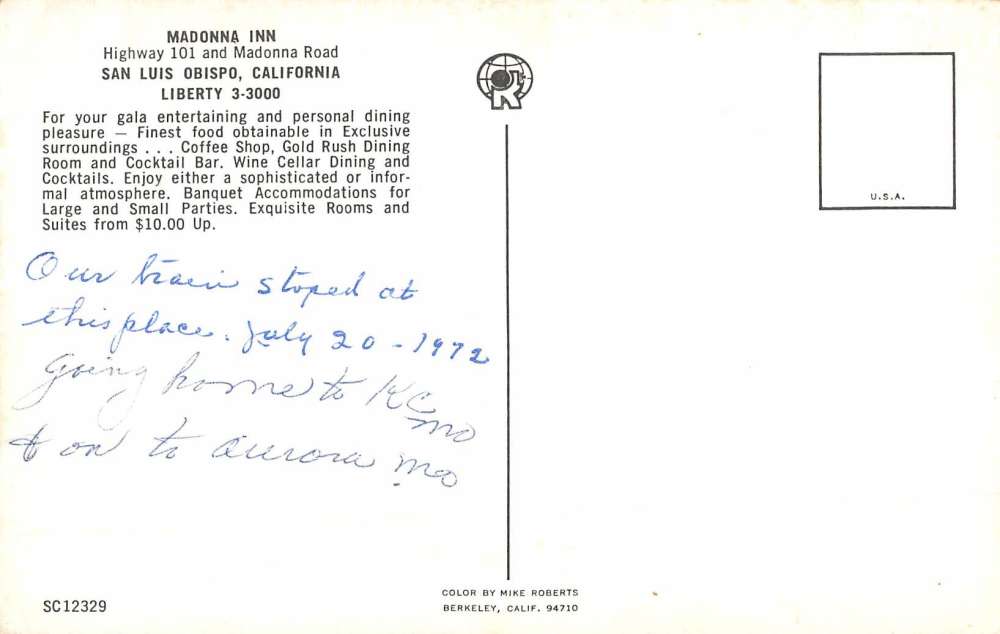 MADONNA INN
Highway 101 and Madonna Road
SAN LUIS OBISPO, CALIFORNIA
LIBERTY 3-3000
For your gala entertaining and personal dining
pleasure — Finest food obtainable in Exclusive
surroundings . . . Coffee Shop, Gold Rush Dining
Room and Cocktail Bar. Wine Cellar Dining and
Cocktails. Enjoy either a sophisticated or infor-
mal atmosphere. Banquet Accommodations for
Large and Small Parties. Exquisite Rooms and
Suites from $10.00 Up.
Our train stoped at
this place. July 20 - 1972
Going home to KC
mo
& on to aurora mo
SC12329
R
U.S.A.
COLOR BY MIKE ROBERTS
BERKELEY, CALIF. 94710